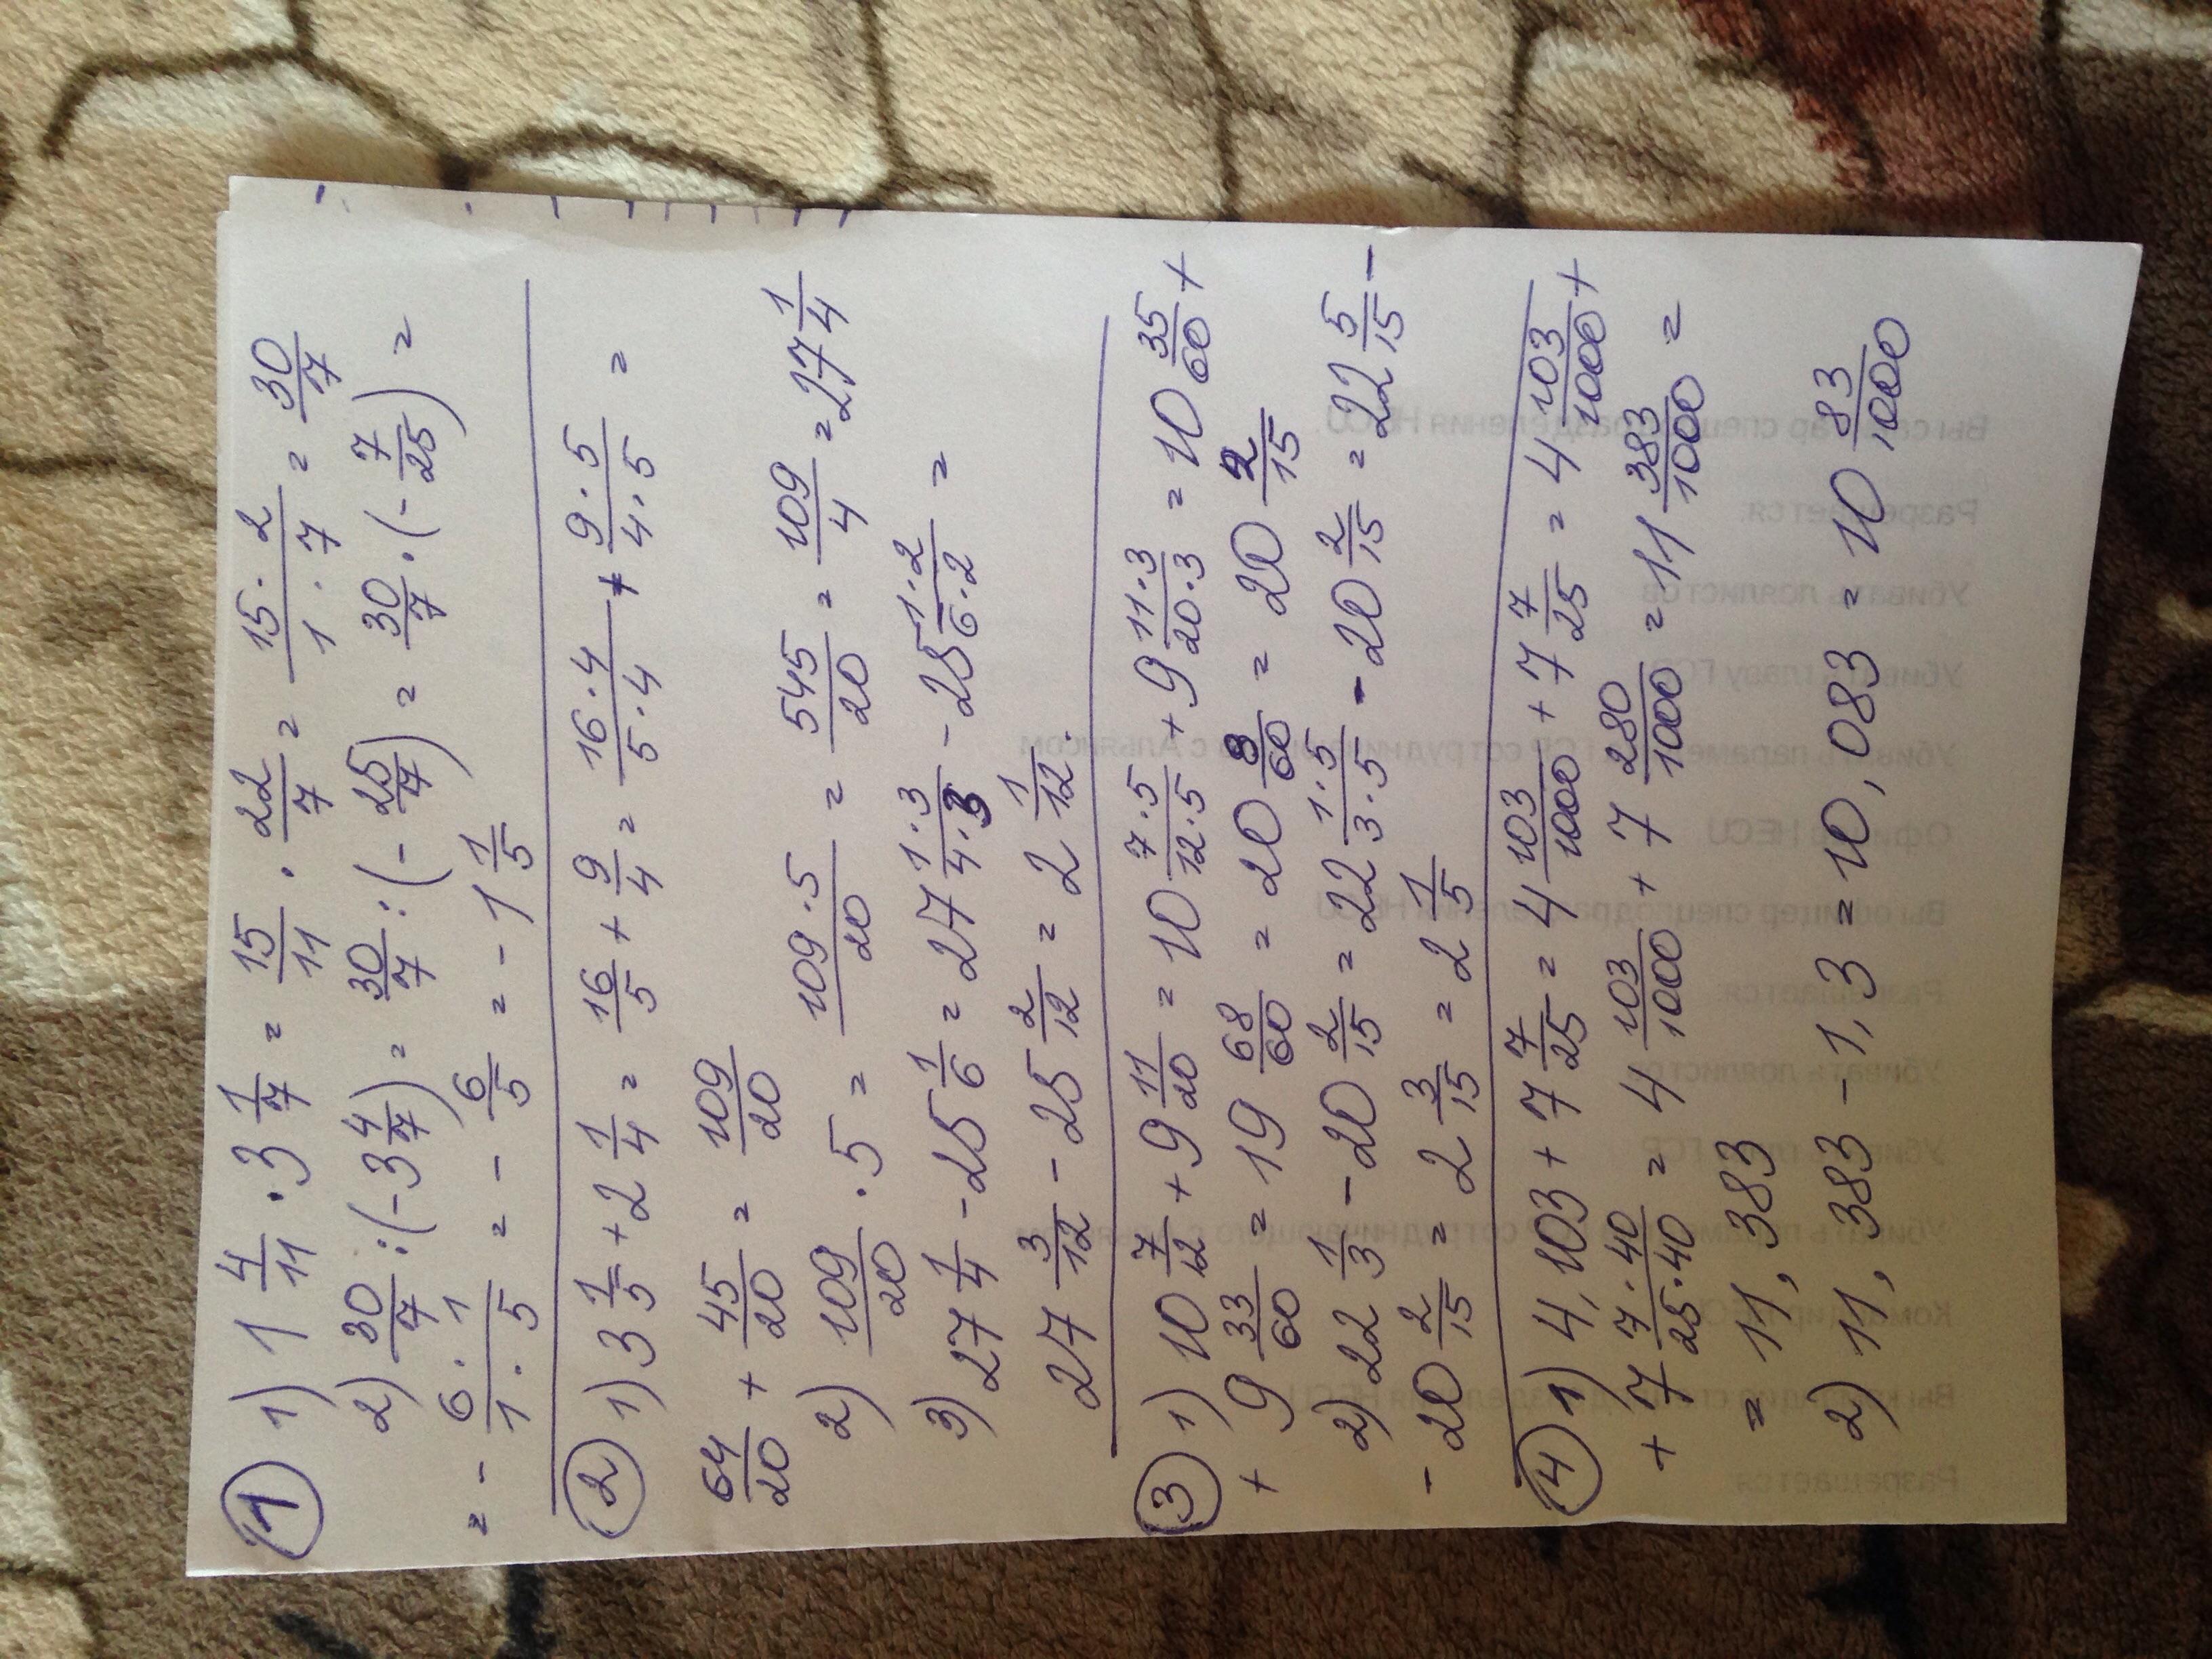 ① 1) 1 4/11 · 3 1/7 = 15/11 · 22/7 = (15 · 2)/(1 · 7) = 30/7
2) 30/7 : (-3 4/7) = 30/7 : (- 25/7) = 30/7 · (- 7/25) =
= - (6 · 1)/(1 · 5) = - 6/5 = - 1 1/5
② 1) 3 1/5 + 2 1/4 = 16/5 + 9/4 = (16 · 4)/(5 · 4) + (9 · 5)/(4 · 5) =
64/20 + 45/20 = 109/20
2) 109/20 · 5 = (109 · 5)/20 = 545/20 = 109/4 = 27 1/4
3) 27 1/4 - 25 1/6 = 27 (1 · 3)/(4 · 3) - 25 (1 · 2)/(6 · 2) =
27 3/12 - 25 2/12 = 2 1/12.
③ 1) 10 7/12 + 9 11/20 = 10 (7 · 5)/(12 · 5) + 9 (11 · 3)/(20 · 3) = 10 35/60 +
+ 9 33/60 = 19 68/60 = 20 8/60 = 20 2/15
2) 22 1/3 - 20 2/15 = 22 (1 · 5)/(3 · 5) - 20 2/15 = 22 5/15 -
- 20 2/15 = 2 3/15 = 2 1/5
④ 1) 4,103 + 7 7/25 = 4 103/1000 + 7 7/25 = 4 103/1000 +
+ 7 (7 · 40)/(25 · 40) = 4 103/1000 + 7 280/1000 = 11 383/1000 =
= 11,383
2) 11,383 - 1,3 = 10,083 = 10 83/1000